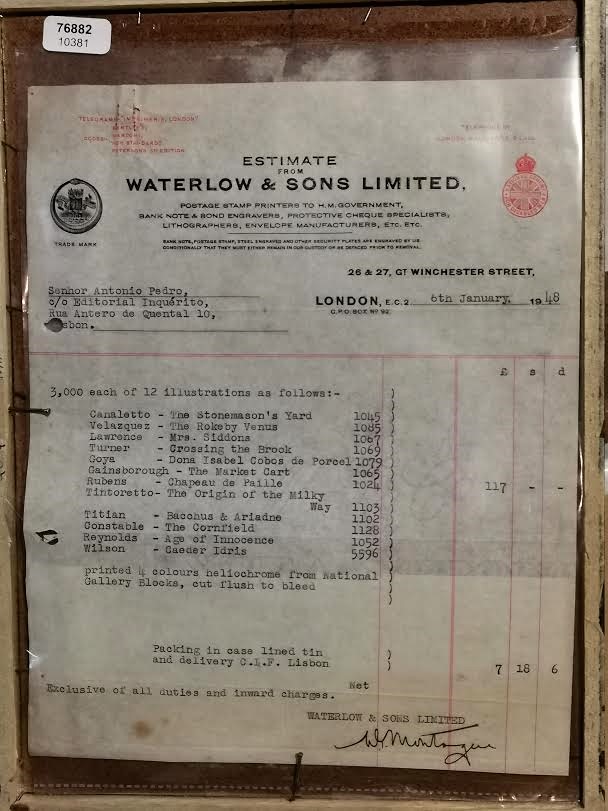 76882
10381
TELEGRAMS
LONDON"
CODES:
ESTIMATE
FROM
WATERLOW & SONS LIMITED,
POSTAGE STAMP PRINTERS TO H.M. GOVERNMENT,
BANK NOTE & BOND ENGRAVERS, PROTECTIVE CHEQUE SPECIALISTS,
LITHOGRAPHERS, ENVELOPE MANUFACTURERS, ETC. ETC.
TRADE MARK
BANK NOTE, POSTAGE STAMP, STEEL ENGRAVED AND OTHER SECURITY PLATES ARE ENGRAVED BY US
CONDITIONALLY THAT THEY MUST EITHER REMAIN IN OUR CUSTODY OR BE DEFACED PRIOR TO REMOVAL.
26 & 27, GT WINCHESTER STREET,
Senhor Antonio Pedro,
c/o Editorial Inquérito,
Rua Antero de Quental 10,
sbon.
LONDON, E.C.2. 6th January, 1948
G.P.O. BOX No 92.
£ s d
3,000 each of 12 illustrations as follows:- )
Canaletto - The Stonemason's Yard 1045 )
Velazquez - The Rokeby Venus 1085 )
Lawrence - Mrs. Siddons 1067 )
Turner - Crossing the Brook 1069 )
Goya - Dona Isabel Cobos de Porcel 1079 )
Gainsborough - The Market Cart 1065 )
Rubens - Chapeau de Paille 1024 ) 117 - -
Tintoretto- The Origin of the Milky )
Way 1103 )
Titian - Bacchus & Ariadne 1102 )
Constable - The Cornfield 1128 )
Reynolds - Age of Innocence 1052 )
Wilson - Caeder Idris 5596 )
printed 4 colours heliochrome from National )
Gallery Blocks, cut flush to bleed )
Packing in case lined tin )
and delivery C.I.F. Lisbon ) 7 18 6
Net
Exclusive of all duties and inward charges.
WATERLOW & SONS LIMITED